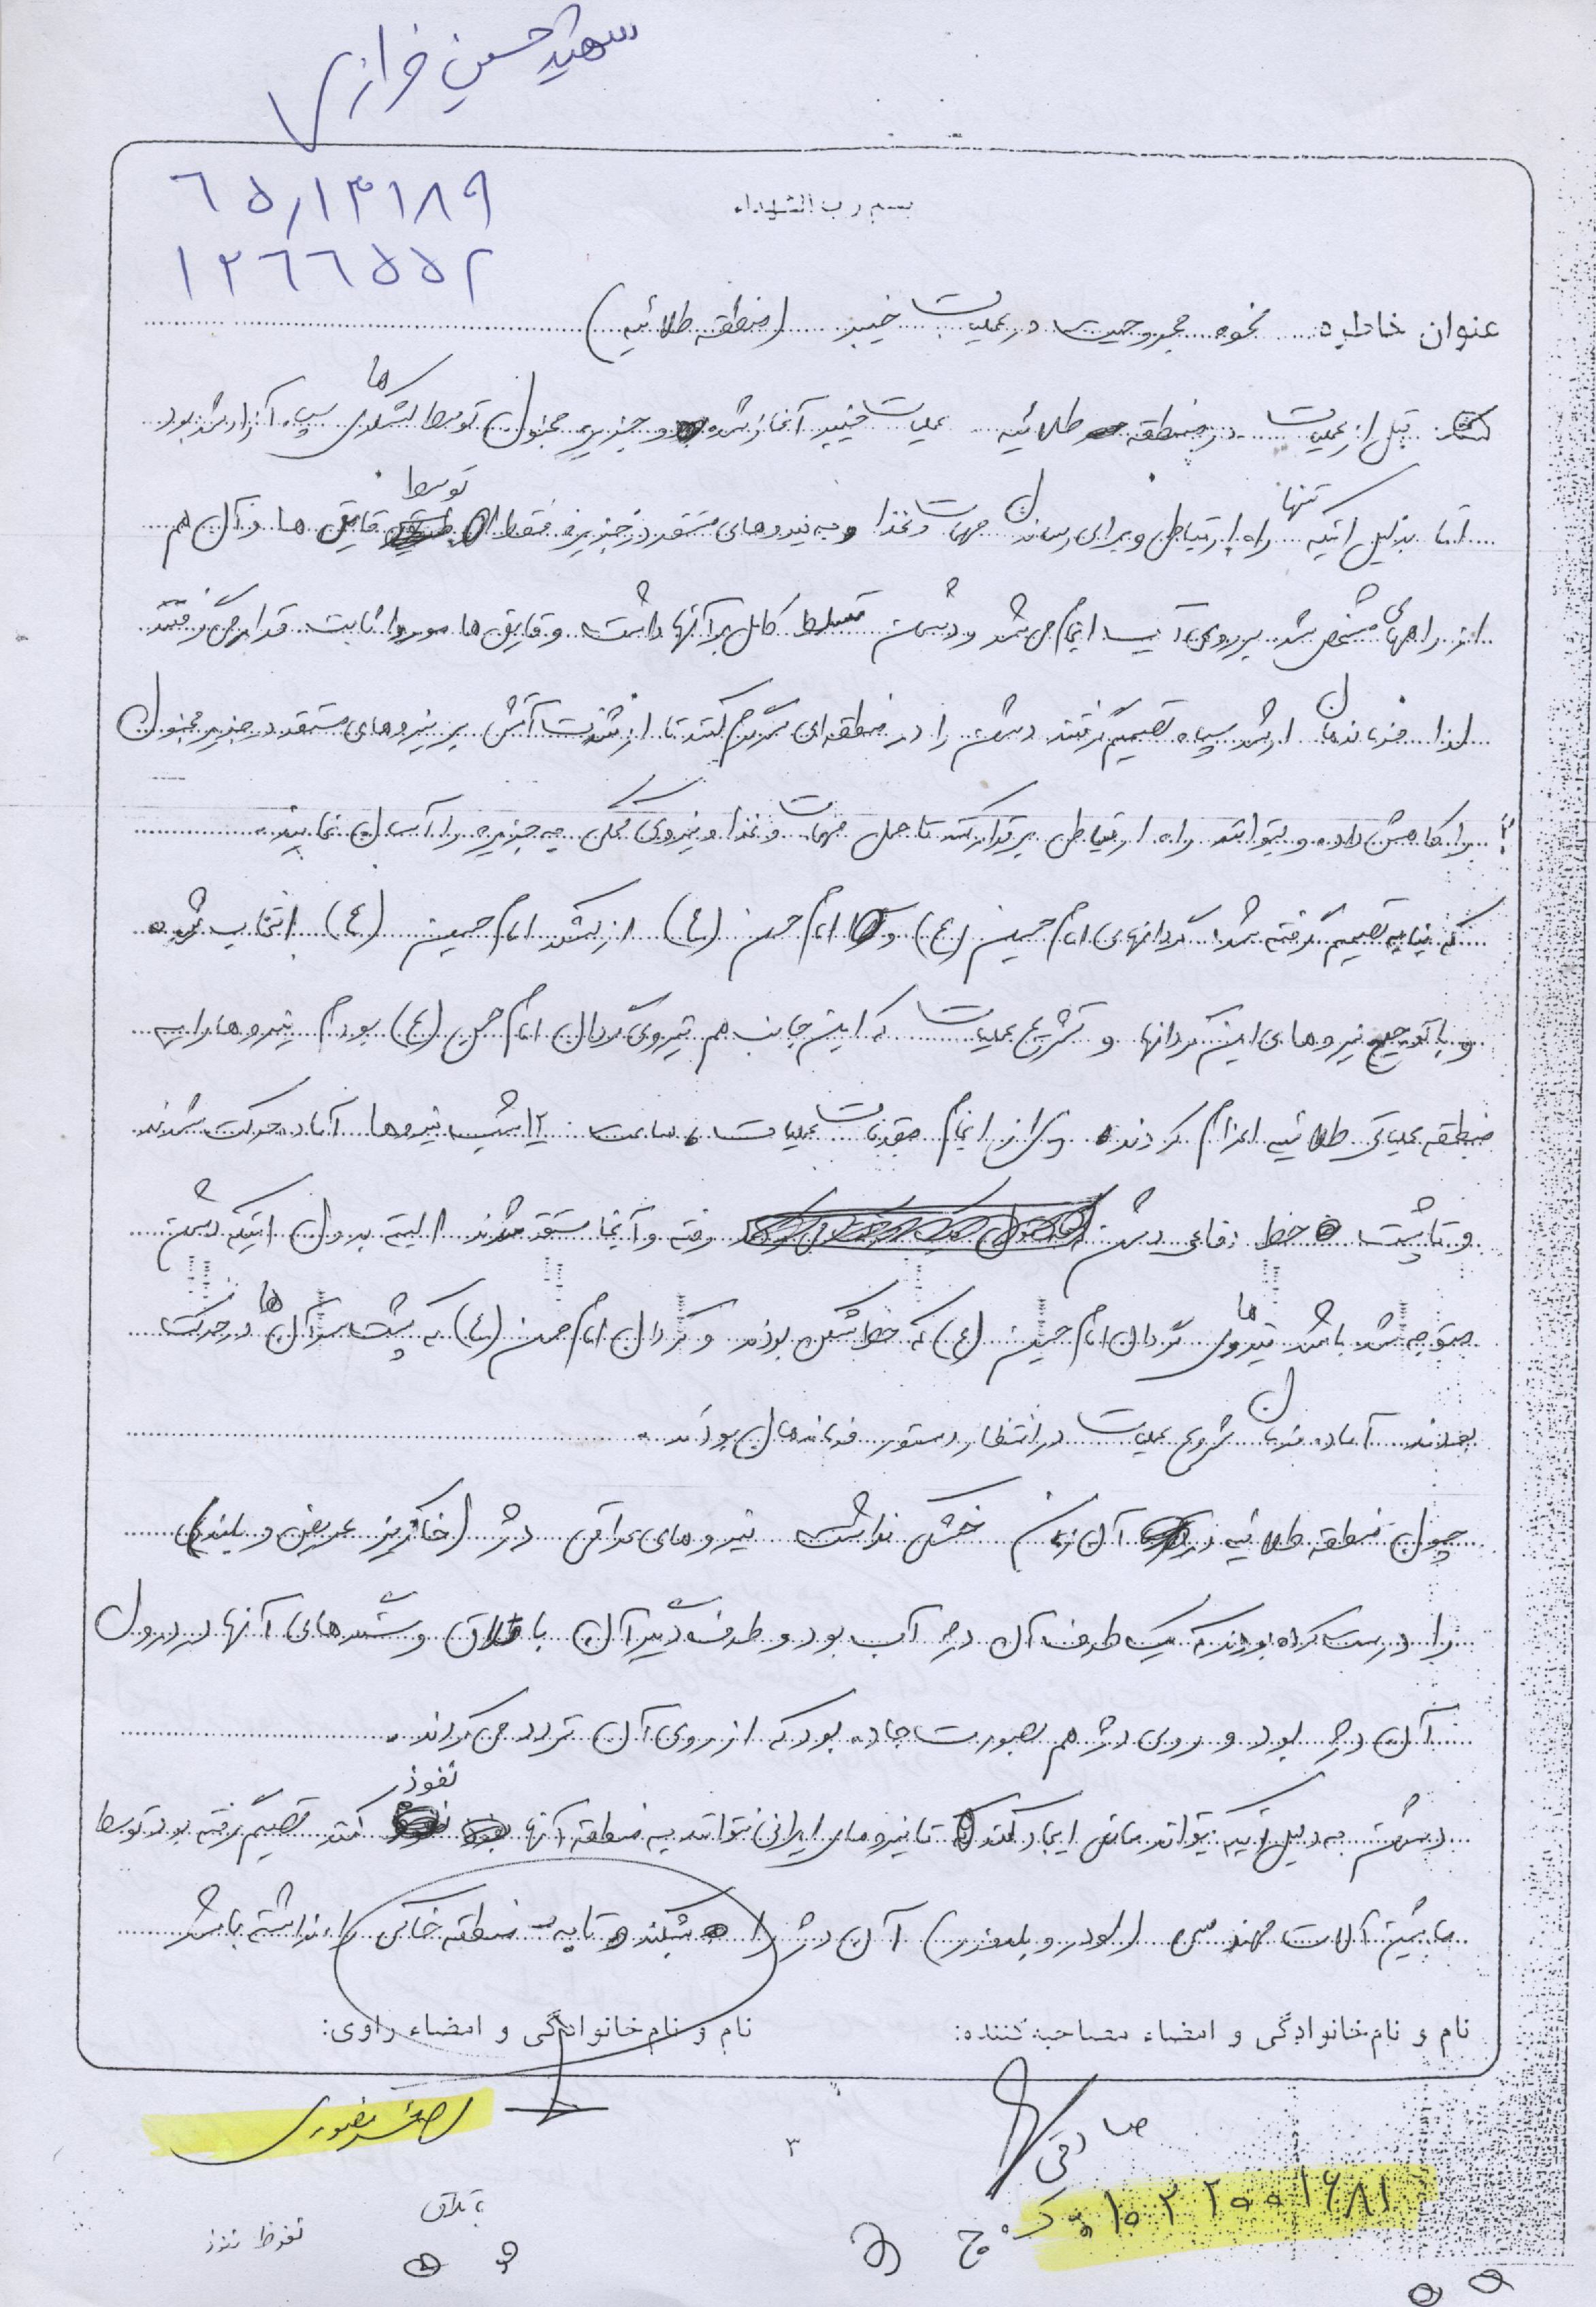 شهید حسین خرازی
۶۵۱۳۱۸۹
۱۲۶۶۵۵۲
بسم رب الشهداء
عنوان خاطره: نحوه مجروحیت در عملیات خیبر (منطقه طلائیه)
قبل از عملیات در منطقه طلائیه عملیات خیبر آغاز شده و جزیره مجنون توسط لشگرهای سپاه آزاد شده بود
اما بدلیل اینکه تنها راه ارتباطی و برای رساندن مهمات و غذا و به نیروهای مستقر در جزیره فقط توسط قایق ها و آن هم
از راههای مشخص شده بر روی آب انجام می شد و دشمن تسلط کامل بر آنها داشت و قایق ها مورد اثابت قرار می گرفتند
لذا فرماندهان ارشد سپاه تصمیم گرفتند دشمن را در منطقه ای سرگرم کنند تا از شدت آتش بر نیروهای مستقر در جزیره مجنون
را کاهش داده و بتوانند راه ارتباطی برقرار کنند تا حمل مهمات و غذا و نیروی کمکی به جزیره را آسان نمایند.
که بنا به تصمیم گرفته شده گردانهای امام حسین (ع) و امام حسن (ع) از لشکر امام حسین (ع) انتخاب شده
و با توجیح نیروهای این گردانها و تشریح عملیات که این جانب هم نیروی گردان امام حسن (ع) بودم نیروها را به
منطقه عملیاتی طلائیه اعزام کردند. پس از انجام مقدمات عملیات ساعت ۱۲ شب نیروها آماده حرکت شدند
و تا پشت خط دفاعی دشمن رفته و آنجا مستقر شدند البته بدون اینکه دشمن
متوجه شده باشد نیروهای گردان امام حسین (ع) که خط شکن بودند و گردان امام حسن (ع) که پشت سر آن ها در حرکت
بودند آماده فرمان شروع عملیات در انتظار دستور فرماندهان بودند.
چون منطقه طلائیه در آن زمان خشکی نداشت نیروهای عراقی دژ (خاکریز عریض و بلند)
را درست کرده بودند که یک طرف آن دژ آب بود و طرف دیگر آن باتلاق و سنگرهای آنها در درون
آن دژ بود و روی دژ هم بصورت جاده بود که از روی آن تردد می کردند.
دشمن به دلیل اینکه بتواند مانعی ایجاد کند تا نیروهای ایرانی نتوانند به منطقه آنها نفوذ کنند تصمیم گرفته بود توسط
ماشین آلات مهندسی (لودر و بلدوزر) آن دژ را بشکند تا به منطقه خاکی راه نداشته باشد
نام و نام خانوادگی و امضاء مصاحبه کننده:
نام و نام خانوادگی و امضاء راوی:
صادقی
۳
باتلاق
نفوظ نفوذ